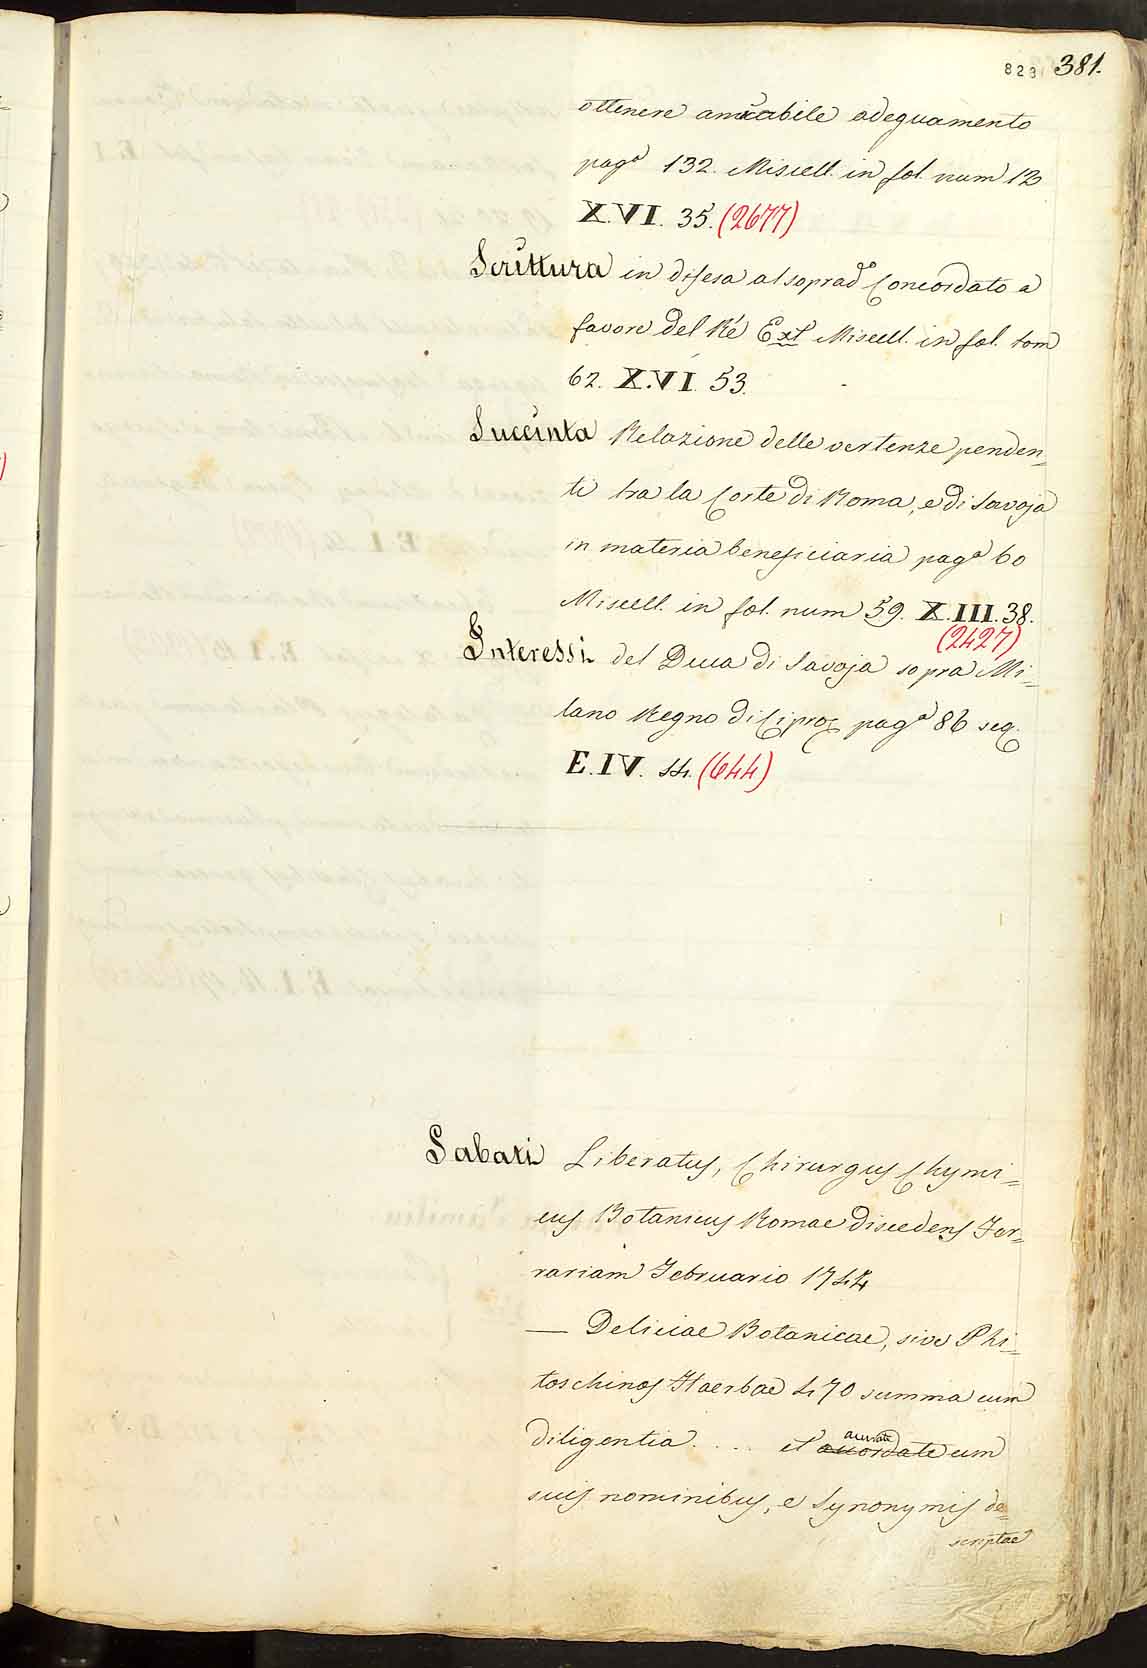 823 381.
ottenere amicabile adeguamento
pag.ᵃ 132. Miscell. in fol. num 12
X.VI. 35. (2677)
Scrittura in difesa al soprad.º Concordato a
favore del Ré Ext Miscell. in fol. tom
62. X.VI. 53.
Succinta Relazione delle vertenze penden=
ti tra la Corte di Roma, e di Savoja
in materia beneficiaria pag.ᵃ 60
Miscell. in fol. num 59. X.III. 38.
(2427)
Interessi del Duca di Savoja sopra Mi=
lano Regno di Cipro, pag.ᵃ 86 seq.
E.IV. 44. (644)
Sabati Liberatus, Chirurgus Chymi=
cus Botanicus Romae discedens Fer=
rariam Februario 1744
— Deliciae Botanicae, sive Phi=
toschinos Haerbae 470 summa cum
diligentia .... et accordate accurate cum
suis nominibus, e Synonymis de=
scriptae